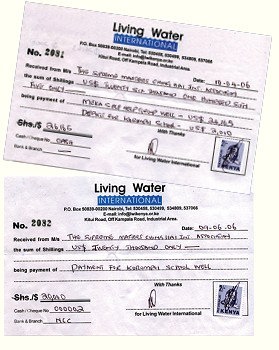 Living Water
INTERNATIONAL
P.O. Box 50838-00200 Nairobi, Tel: 534498, 534499, 534809, 537066
E-mail: info@lwikenya.or.ke
Kitui Road, Off Kampala Road, Industrial Area.
No. 2081
Date: 10.04.06
Received from M/s THE SUPREME MASTER CHING HAI INT. ASSOCIATION
the sum of Shillings US$ TWENTY SIX THOUSAND ONE HUNDRED SIXTY
FIVE ONLY
being payment of
GROUP WELL - US$
SCHOOL - US$
Shs./$ 26165
Cash/Cheque No. CASH
With Thanks
Bank & Branch
for Living Water International
KENYA
Living Water
INTERNATIONAL
P.O. Box 50838-00200 Nairobi, Tel: 534498, 534499, 534809, 537066
E-mail: info@lwikenya.or.ke
Kitui Road, Off Kampala Road, Industrial Area.
No. 2082
Date: 09.06.06
Received from M/s THE SUPREME MASTER CHING HAI INT. ASSOCIATION
the sum of Shillings US$ TWENTY THOUSAND ONLY
being payment of PAYMENT FOR SCHOOL WELL
Shs./$
With Thanks
Cash / Cheque No 000002
Bank & Branch
for Living Water International
KENYA